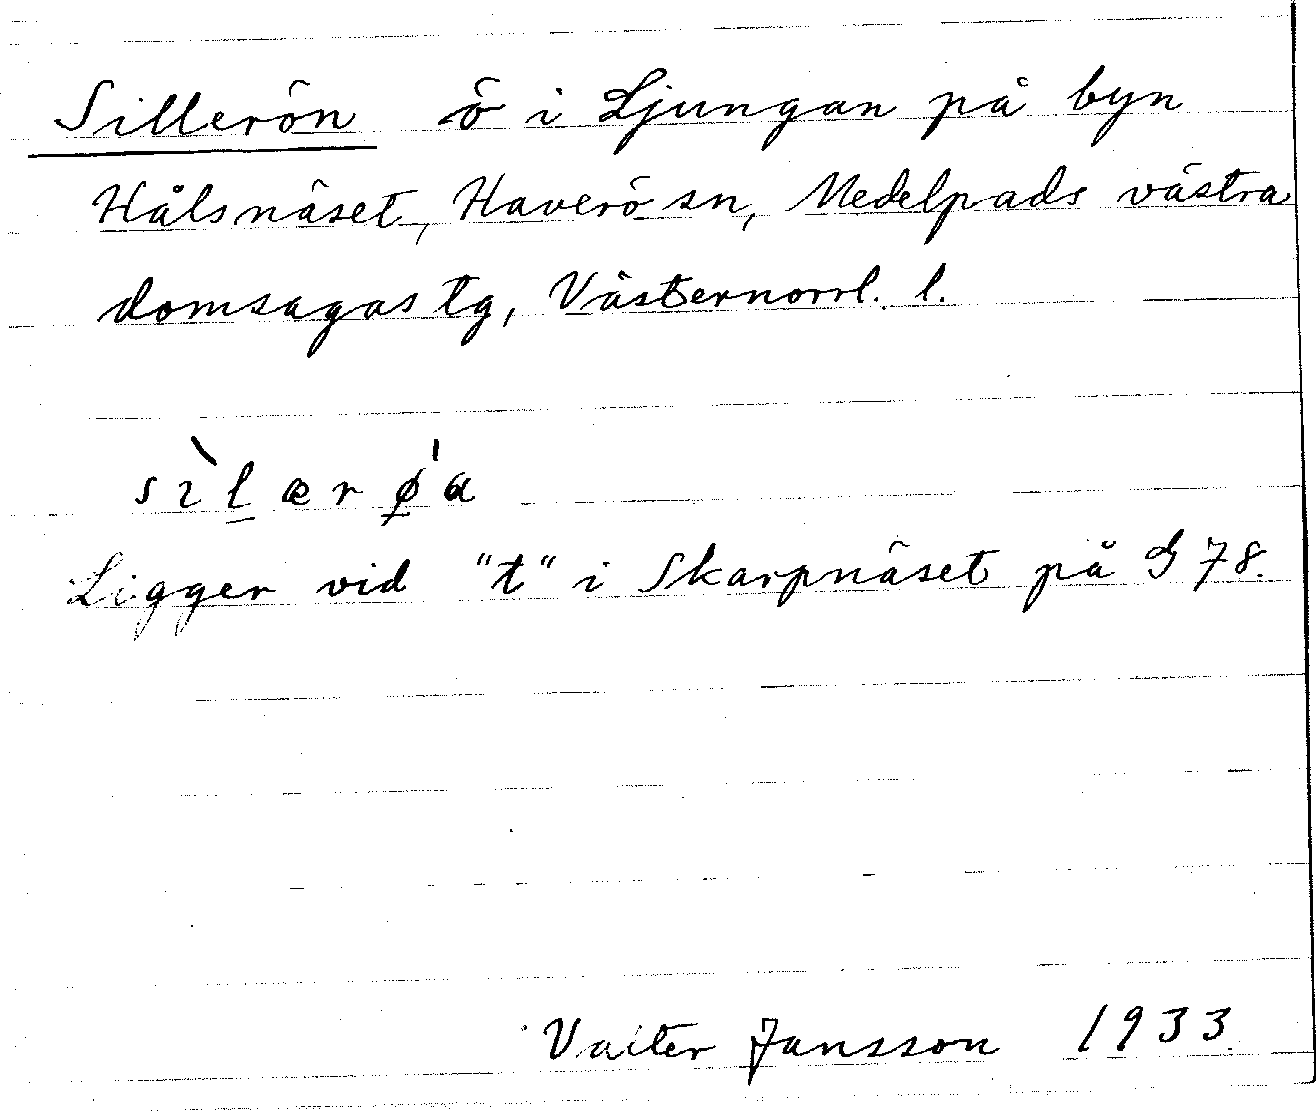 Sillerön ö i Ljungan på byn
Hålsnäset, Haverö sn, Medelpads västra
domsagas tg, Västernorrl. l.
sìlærǿa
Ligger vid "t" i Skarpnäset på G 78.
Valter Jansson 1933